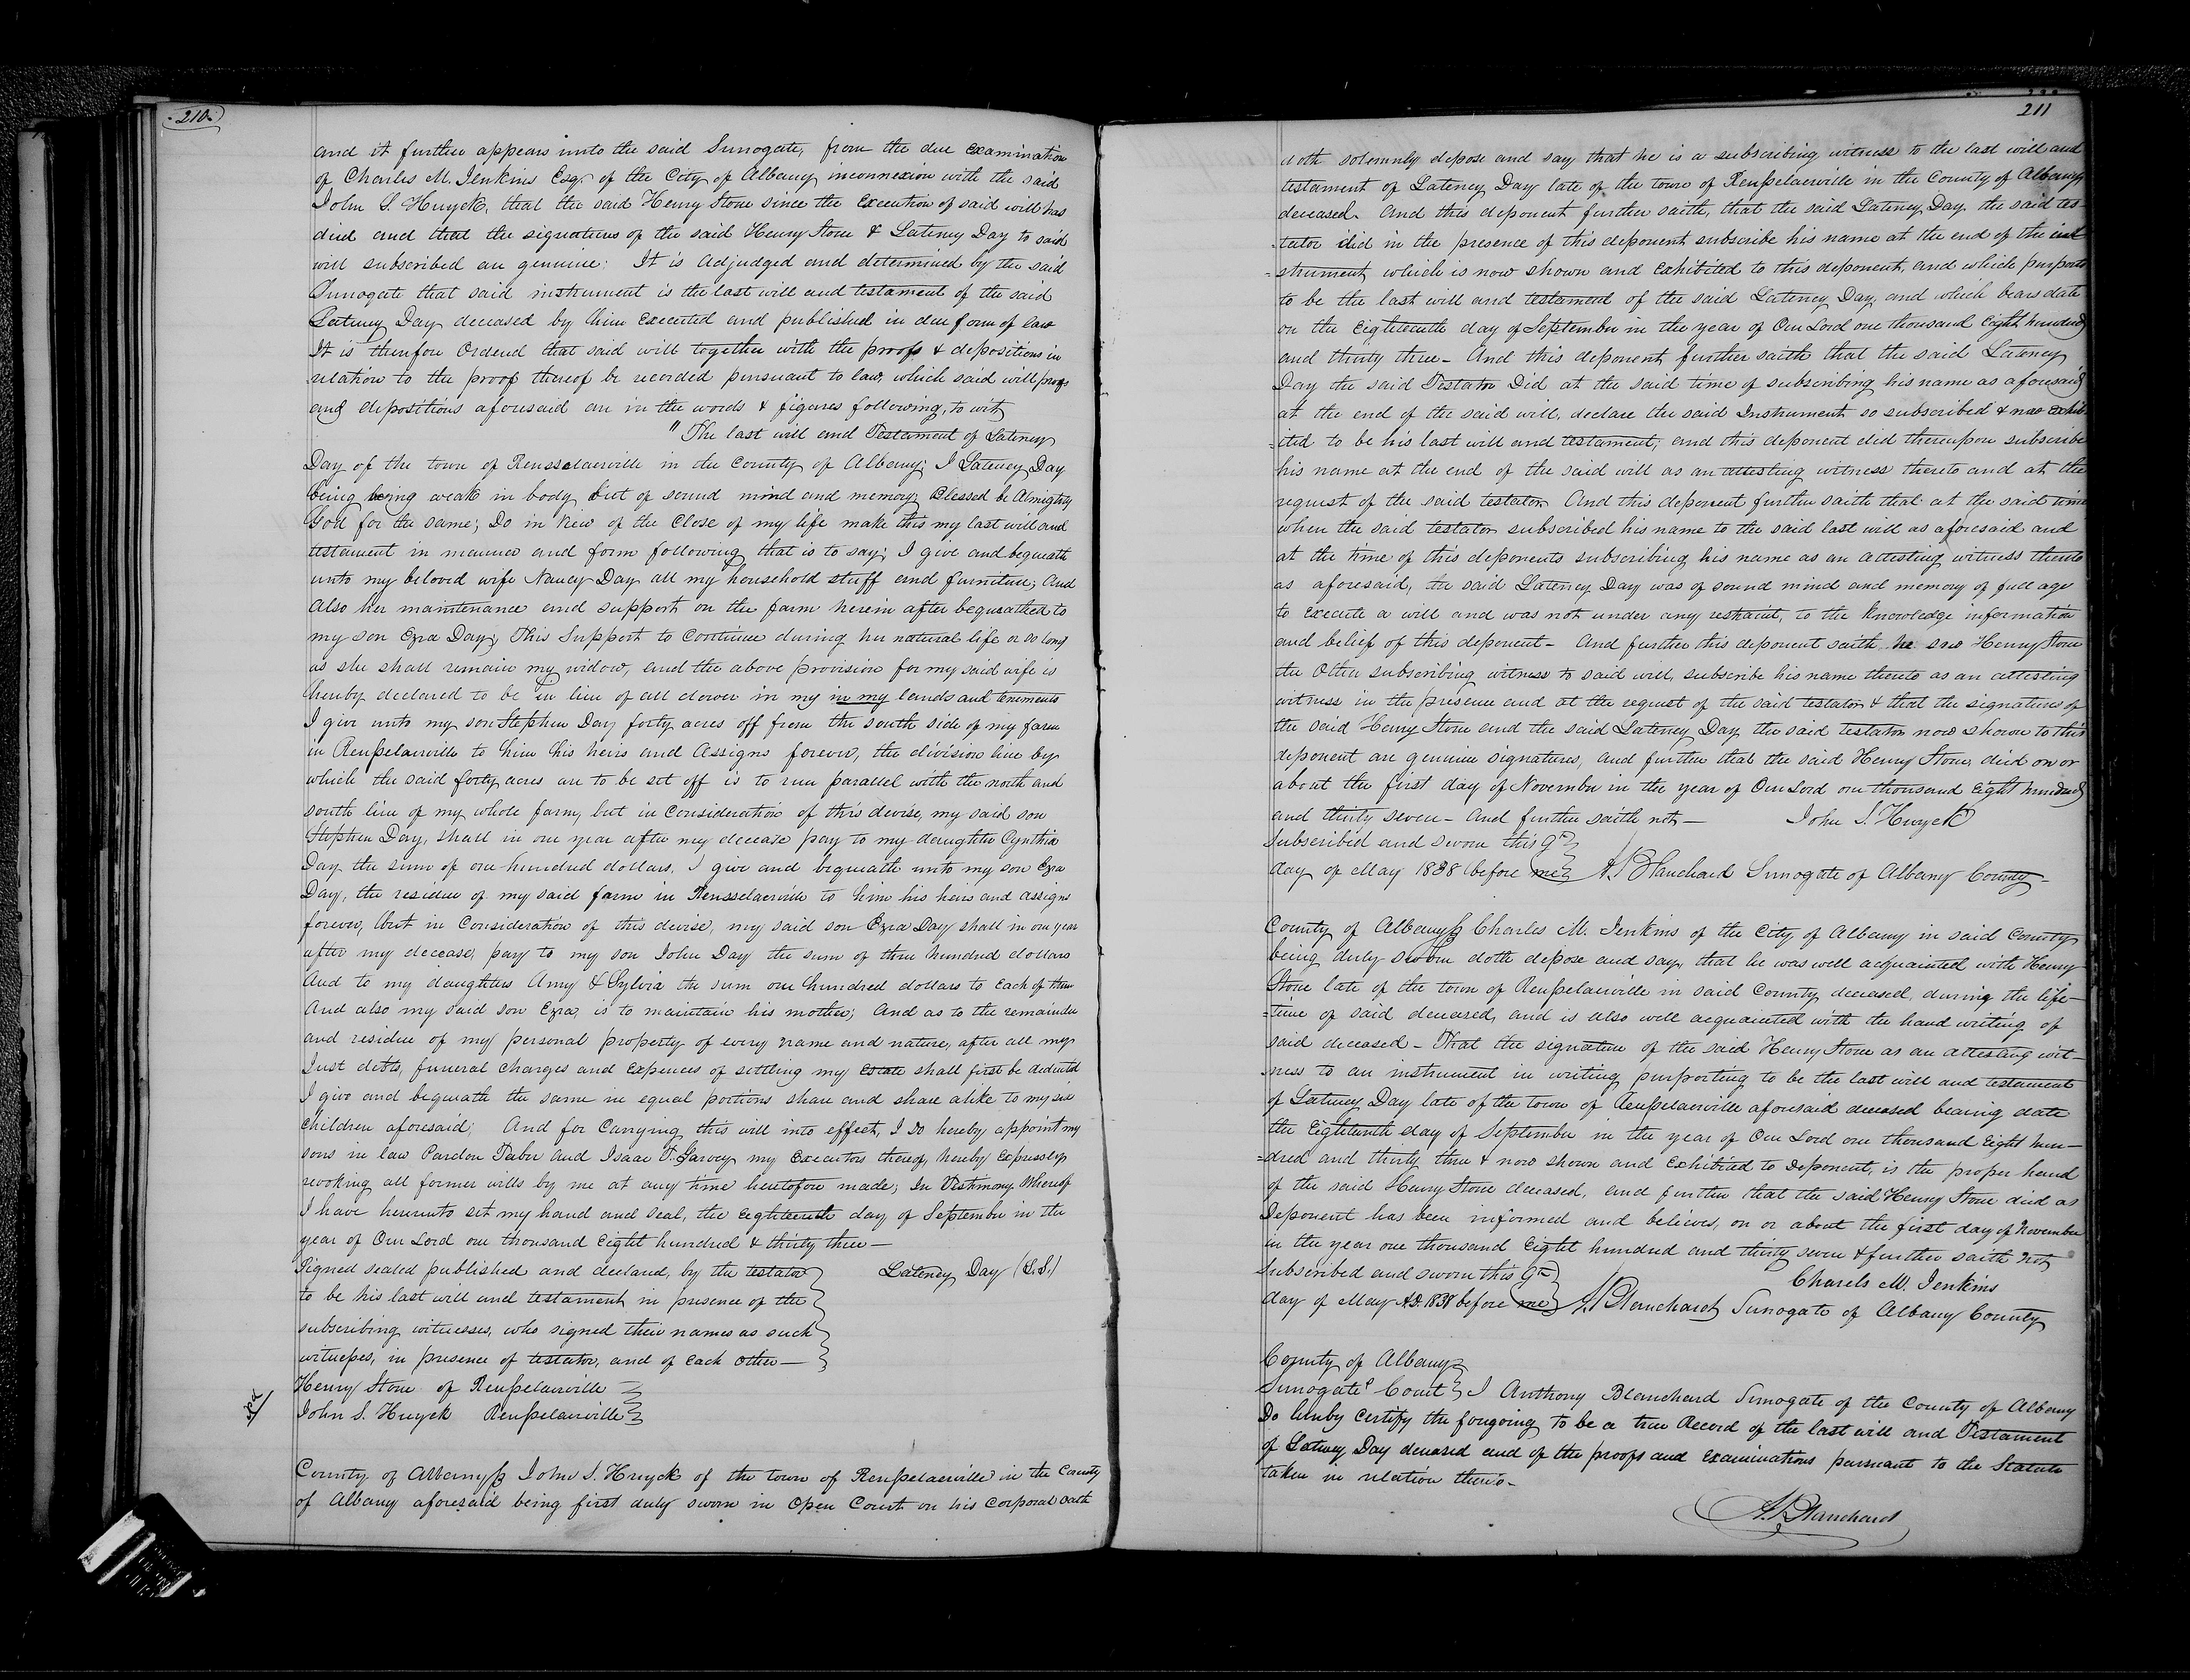 210.
and it further appears unto the said Surrogate, from the due examination
of Charles M. Jenkins Esqr. of the City of Albany, inconnexion with the said
John S. Huyck, that the said Henry Stone since the Execution of said will has
died and that the signatures of the said Henry Stone & Lateney Day to said
will subscribed are genuine: It is Adjudged and determined by the said
Surrogate that said instrument is the last will and testament of the said
Lateney Day deceased by him executed and published in due form of law
It is therefore Ordered that said will together with the proofs & depositions in
relation to the proof thereof be recorded pursuant to law, which said will proofs
and depositions aforesaid are in the words & figures following, to wit,
"The last will and Testament of Lateney
Day of the town of Rensselaerville in the County of Albany; I Lateney Day
being being weak in body but of sound mind and memory; Blessed be Almighty
God for the same; Do in view of the Close of my life make this my last will and
testament in manner and form following that is to say; I give and bequeath
unto my beloved wife Nancy Day all my household stuff and furniture; And
Also her maintenance and support on the farm herein after bequeathed to
my son Ezra Day; This Support to Continue during her natural life or so long
as she shall remain my widow, and the above provision for my said wife is
hereby declared to be in lieu of all dower in my in my lands and tenements
I give unto my son Stephen Day forty acres off from the south side of my farm
in Renſselaerville to him his heirs and Assigns forever, the division line by
which the said forty acres are to be set off is to run parallel with the north and
south line of my whole farm, but in Consideration of this devise, my said son
Stephen Day, shall in one year after my decease pay to my daughter Cynthia
Day the sum of one hundred dollars, I give and bequeath unto my son Ezra
Day, the residue of my said farm in Rensselaerville to him his heirs and assigns
forever, but in Consideration of this devise, my said son Ezra Day shall in one year
after my decease, pay to my son John Day the sum of three hundred dollars
And to my daughters Amy & Sylvia the sum one hundred dollars to Each of them
And also my said son Ezra, is to maintain his mother; And as to the remainder
and residue of my personal property of every name and nature, after all my
Just debts, funeral charges and Expences of settling my Estate shall first be deducted
I give and bequeath the same in equal portions share and share alike to my six
children aforesaid; And for Carrying this will into effect, I do hereby appoint my
sons in law Pardon Taber and Isaac T. Garvey my Executors thereof, hereby Expressly
revoking all former wills by me at any time heretofore made; In Testimony Whereof
I have hereunto set my hand and seal, the eighteenth day of September in the
year of Our Lord one thousand Eight hundred & thirty three—
Signed sealed published and declared, by the testator Lateney Day (L.S.)
to be his last will and testament in presence of the
subscribing witnesses, who signed their names as such
witneſses, in presence of testator, and of Each other—
Henry Stone of Renſselaerville
John S. Huyck Renſselaerville
County of Albany ss John S. Huyck of the town of Renſselaerville in the County
of Albany aforesaid being first duly sworn in Open Court on his corporal oath
211
doth solemnly depose and say that he is a subscribing witness to the last will and
testament of Lateney Day late of the town of Renſselaerville in the County of Albany
deceased. And this deponent further saith, that the said Lateney Day the said tes
=tator did in the presence of this deponent subscribe his name at the end of the
=strument which is now shown and Exhibited to this deponent, and which purports
to be the last will and testament of the said Lateney Day, and which bears date
on the Eighteenth day of September in the year of Our Lord one thousand Eight hundred
and thirty three— And this deponent further saith that the said Lateney
Day the said Testator Did at the said time of subscribing his name as aforesaid
at the end of the said will, declare the said Instrument so subscribed & now Exhib
=ited to be his last will and testament, and this deponent did thereupon subscribe
his name at the end of the said will as an attesting witness thereto and at the
request of the said testator. And this deponent further saith that at the said time
when the said testator subscribed his name to the said last will as aforesaid and
at the time of this deponents subscribing his name as an attesting witness thereto
as aforesaid, the said Lateney Day was of sound mind and memory of full age
to Execute a will and was not under any restraint, to the Knowledge information
and belief of this deponent— And further this deponent saith he saw Henry Stone
the Other subscribing witness to said will, subscribe his name thereto as an attesting
witness in the presence and at the request of the said testator & that the signatures of
the said Henry Stone and the said Lateney Day the said testator now shown to this
deponent are genuine signatures, and further that the said Henry Stone, died on or
about the first day of November in the year of Our Lord one thousand Eight hundred
and thirty seven— And further saith not— John S. Huyck
Subscribed and sworn this 9th
day of May 1838 before me A. Blanchard Surrogate of Albany County—
County of Albany ss Charles M. Jenkins of the City of Albany in said County
being duly sworn doth depose and say, that he was well acquainted with Henry
Stone late of the town of Renſselaerville in said County deceased, during the life—
=time of said deceased, and is also well acquainted with the hand writing of
said deceased— That the signature of the said Henry Stone as an attesting wit—
ness to an instrument in writing purporting to be the last will and testament
of Lateney Day late of the town of Renſselaerville aforesaid deceased bearing date
the Eighteenth day of September in the year of Our Lord one thousand Eight hun—
=dred and thirty three & now shown and Exhibited to Deponent, is the proper hand
of the said Henry Stone deceased, and further that the said Henry Stone died as
Deponent has been informed and believes, on or about the first day of November
in the year one thousand Eight hundred and thirty seven & further saith not
Subscribed and sworn this 9th Charels M. Jenkins
day of May A.D. 1838 before me A. Blanchard Surrogate of Albany County
County of Albany
Surrogates Court I Anthony Blanchard Surrogate of the County of Albany
Do hereby Certify the foregoing to be a true Record of the last will and Testament
of Lateney Day deceased and of the proofs and Examinations pursuant to the Statute
taken in relation thereto—
A. Blanchard